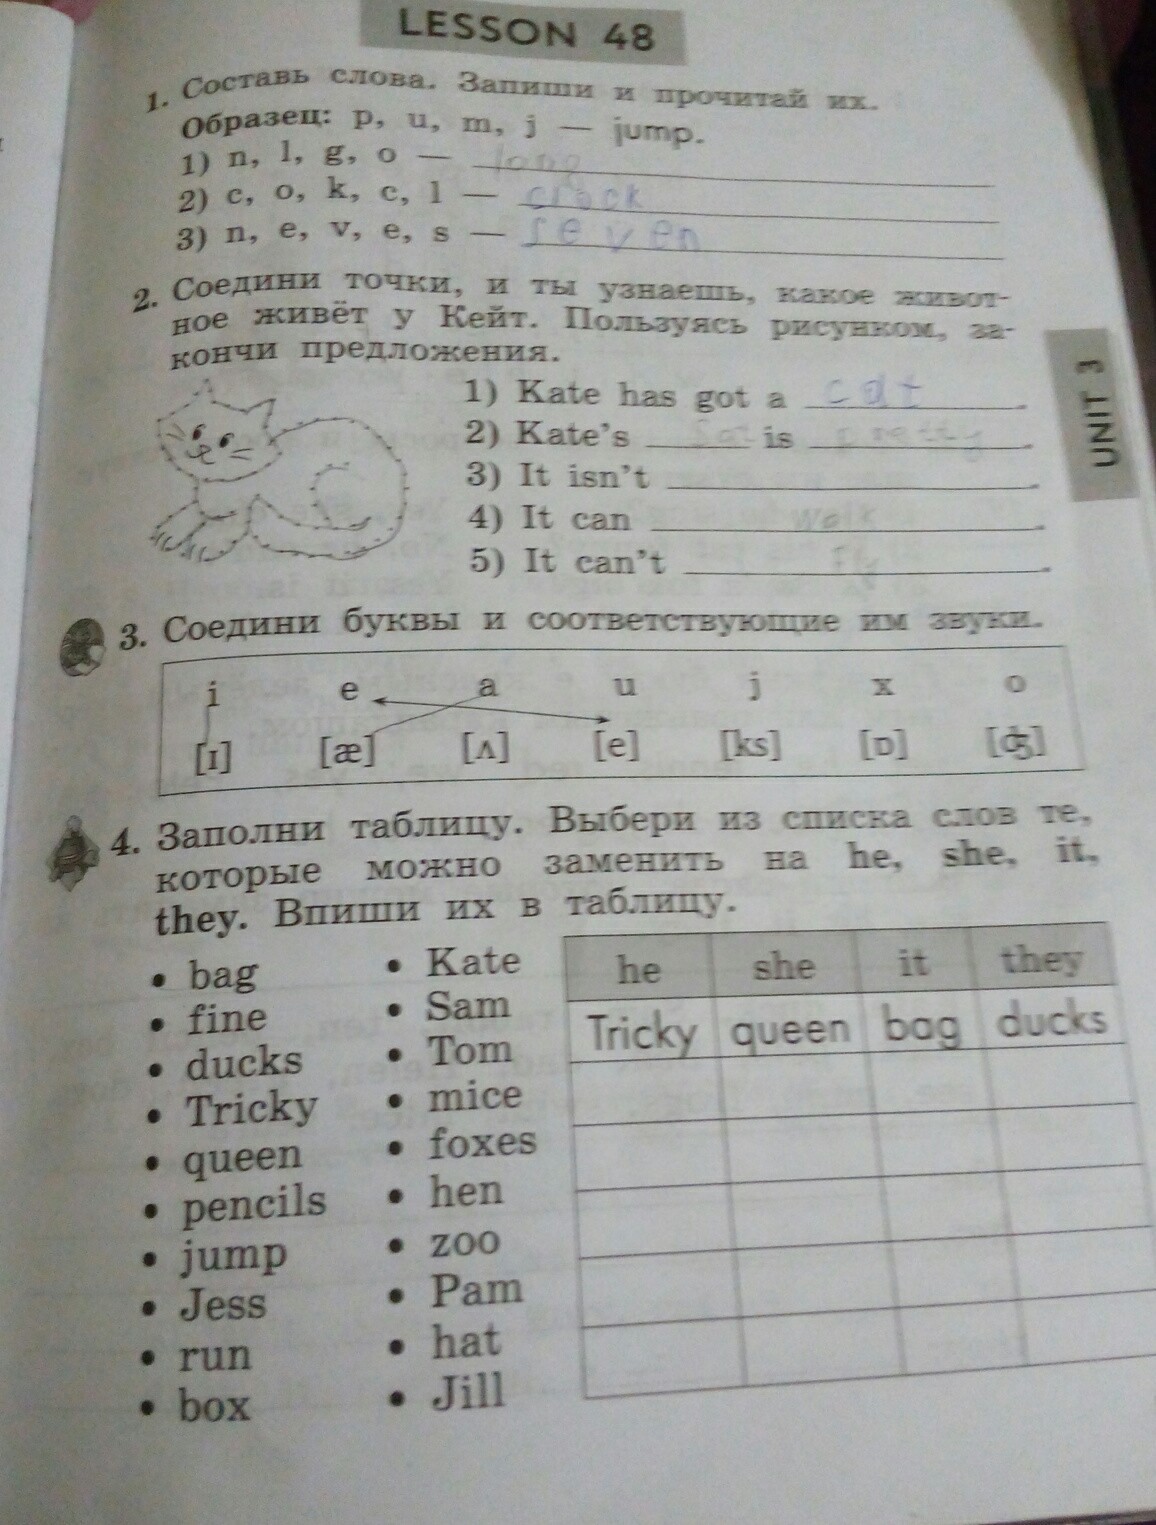 LESSON 48
1. Составь слова. Запиши и прочитай их.
Образец: p, u, m, j — jump.
1) n, l, g, o — long
2) c, o, k, c, l — clock
3) n, e, v, e, s — seven
2. Соедини точки, и ты узнаешь, какое живот-
ное живёт у Кейт. Пользуясь рисунком, за-
кончи предложения.
1) Kate has got a cat.
2) Kate's is pretty.
3) It isn't
4) It can walk.
5) It can't fly.
UNIT 3
3. Соедини буквы и соответствующие им звуки.
i e a u j x o
[ɪ] [æ] [ʌ] [e] [ks] [ɒ] [ʤ]
4. Заполни таблицу. Выбери из списка слов те,
которые можно заменить на he, she, it,
they. Впиши их в таблицу.
• bag
• fine
• ducks
• Tricky
• queen
• pencils
• jump
• Jess
• run
• box
• Kate
• Sam
• Tom
• mice
• foxes
• hen
• zoo
• Pam
• hat
• Jill
he she it they
Tricky queen bag ducks